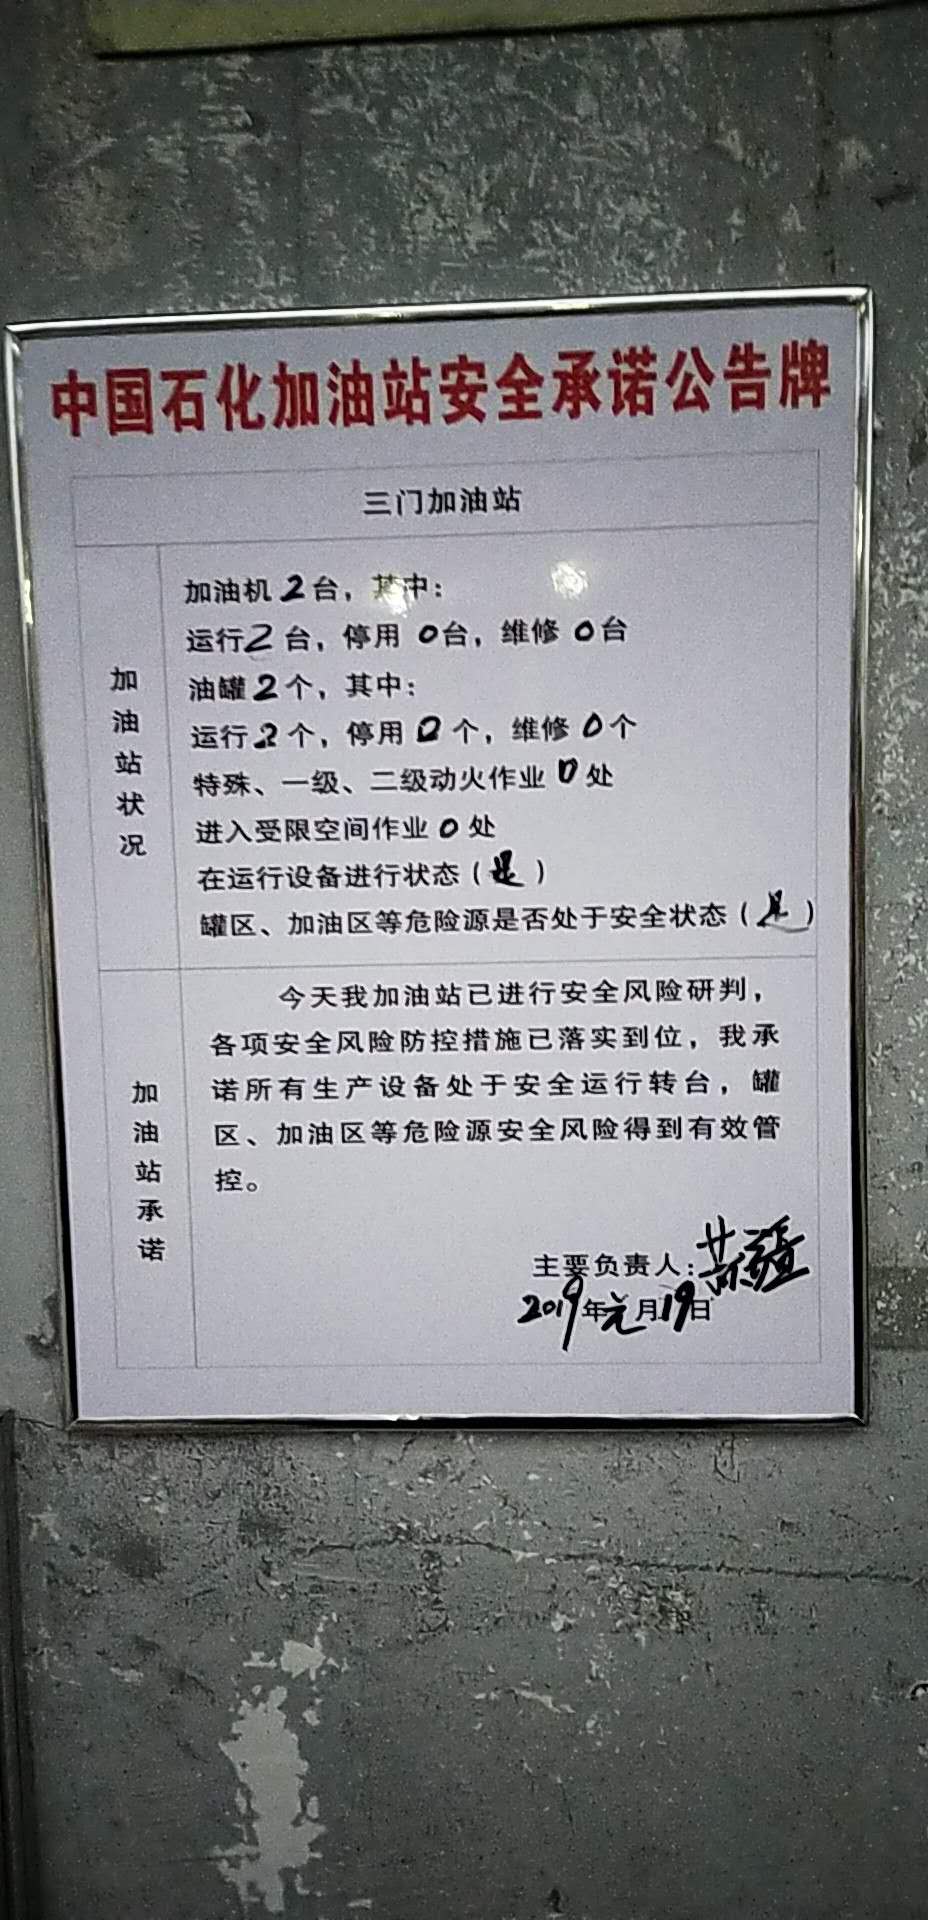 中国石化加油站安全承诺公告牌
三门加油站
加油站状况
加油机2台，其中：
运行2台，停用0台，维修0台
油罐2个，其中：
运行2个，停用0个，维修0个
特殊、一级、二级动火作业0处
进入受限空间作业0处
在运行设备进行状态（是）
罐区、加油区等危险源是否处于安全状态（是）
加油站承诺
今天我加油站已进行安全风险研判，
各项安全风险防控措施已落实到位，我承
诺所有生产设备处于安全运行转台，罐
区、加油区等危险源安全风险得到有效管
控。
主要负责人：
2019年元月19日